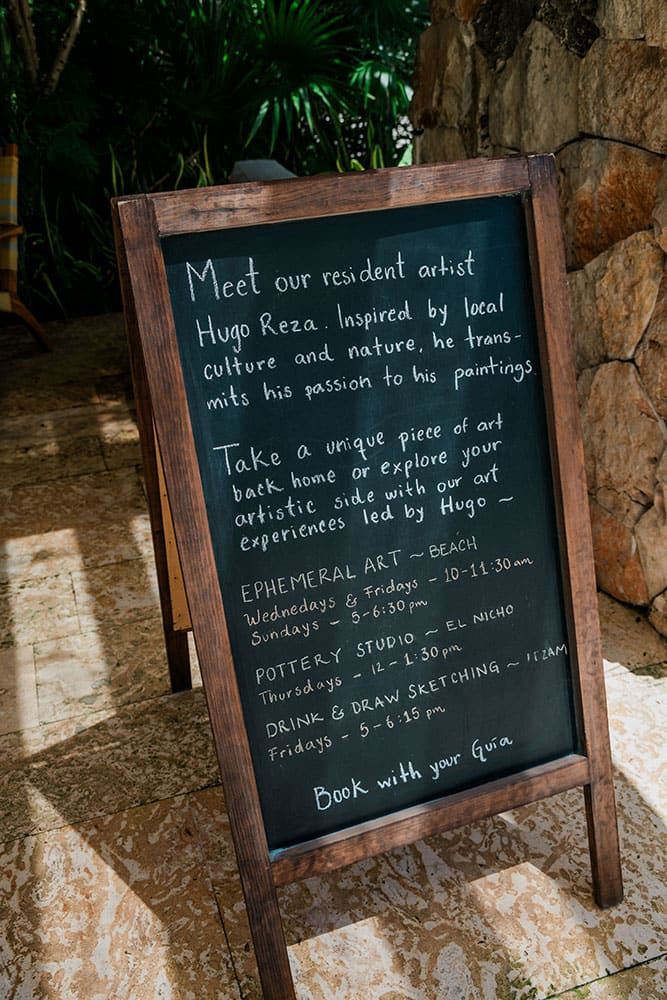 Meet our resident artist
Hugo Reza. Inspired by local
culture and nature, he trans-
mits his passion to his paintings.
Take a unique piece of art
back home or explore your
artistic side with our art
experiences led by Hugo ~
EPHEMERAL ART ~ BEACH
Wednedays & Fridays - 10-11:30 am
Sundays - 5-6:30 pm
POTTERY STUDIO ~ EL NICHO
Thursdays - 12-1:30 pm
DRINK & DRAW SKETCHING ~ ITZAM
Fridays - 5-6:15 pm
Book with your Guía